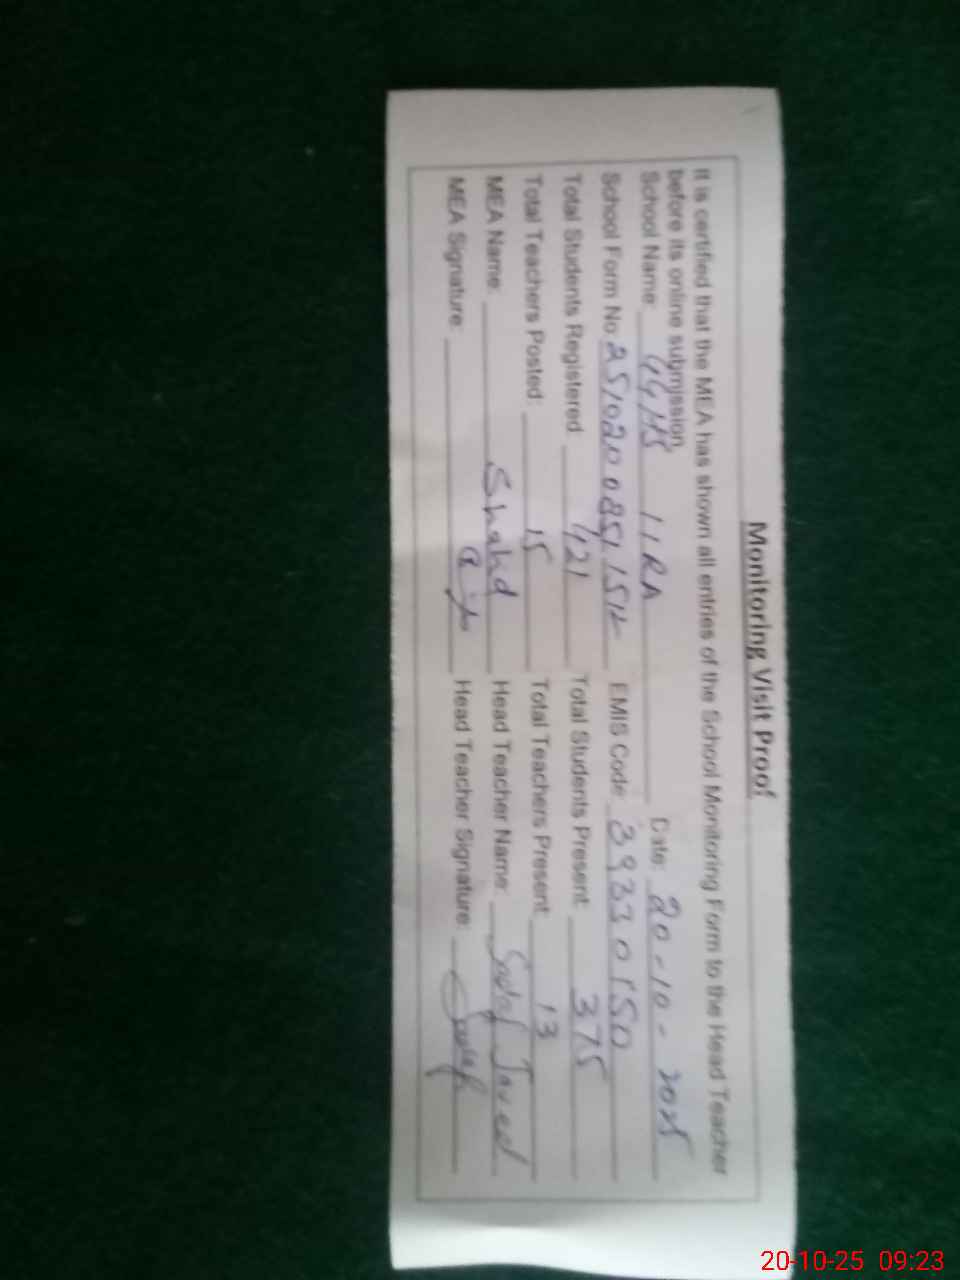 Monitoring Visit Proof
It is certified that the MEA has shown all entries of the School Monitoring Form to the Head Teacher
before its online submission.
School Name: GGHS 11RA Date: 20-10-2025
School Form No: EMIS Code: 39330150
Total Students Registered: 421 Total Students Present: 375
Total Teachers Posted: 15 Total Teachers Present: 13
MEA Name: Shahd Head Teacher Name: Sadaf Javed
MEA Signature: Head Teacher Signature: Sadaf
20-10-25 09:23